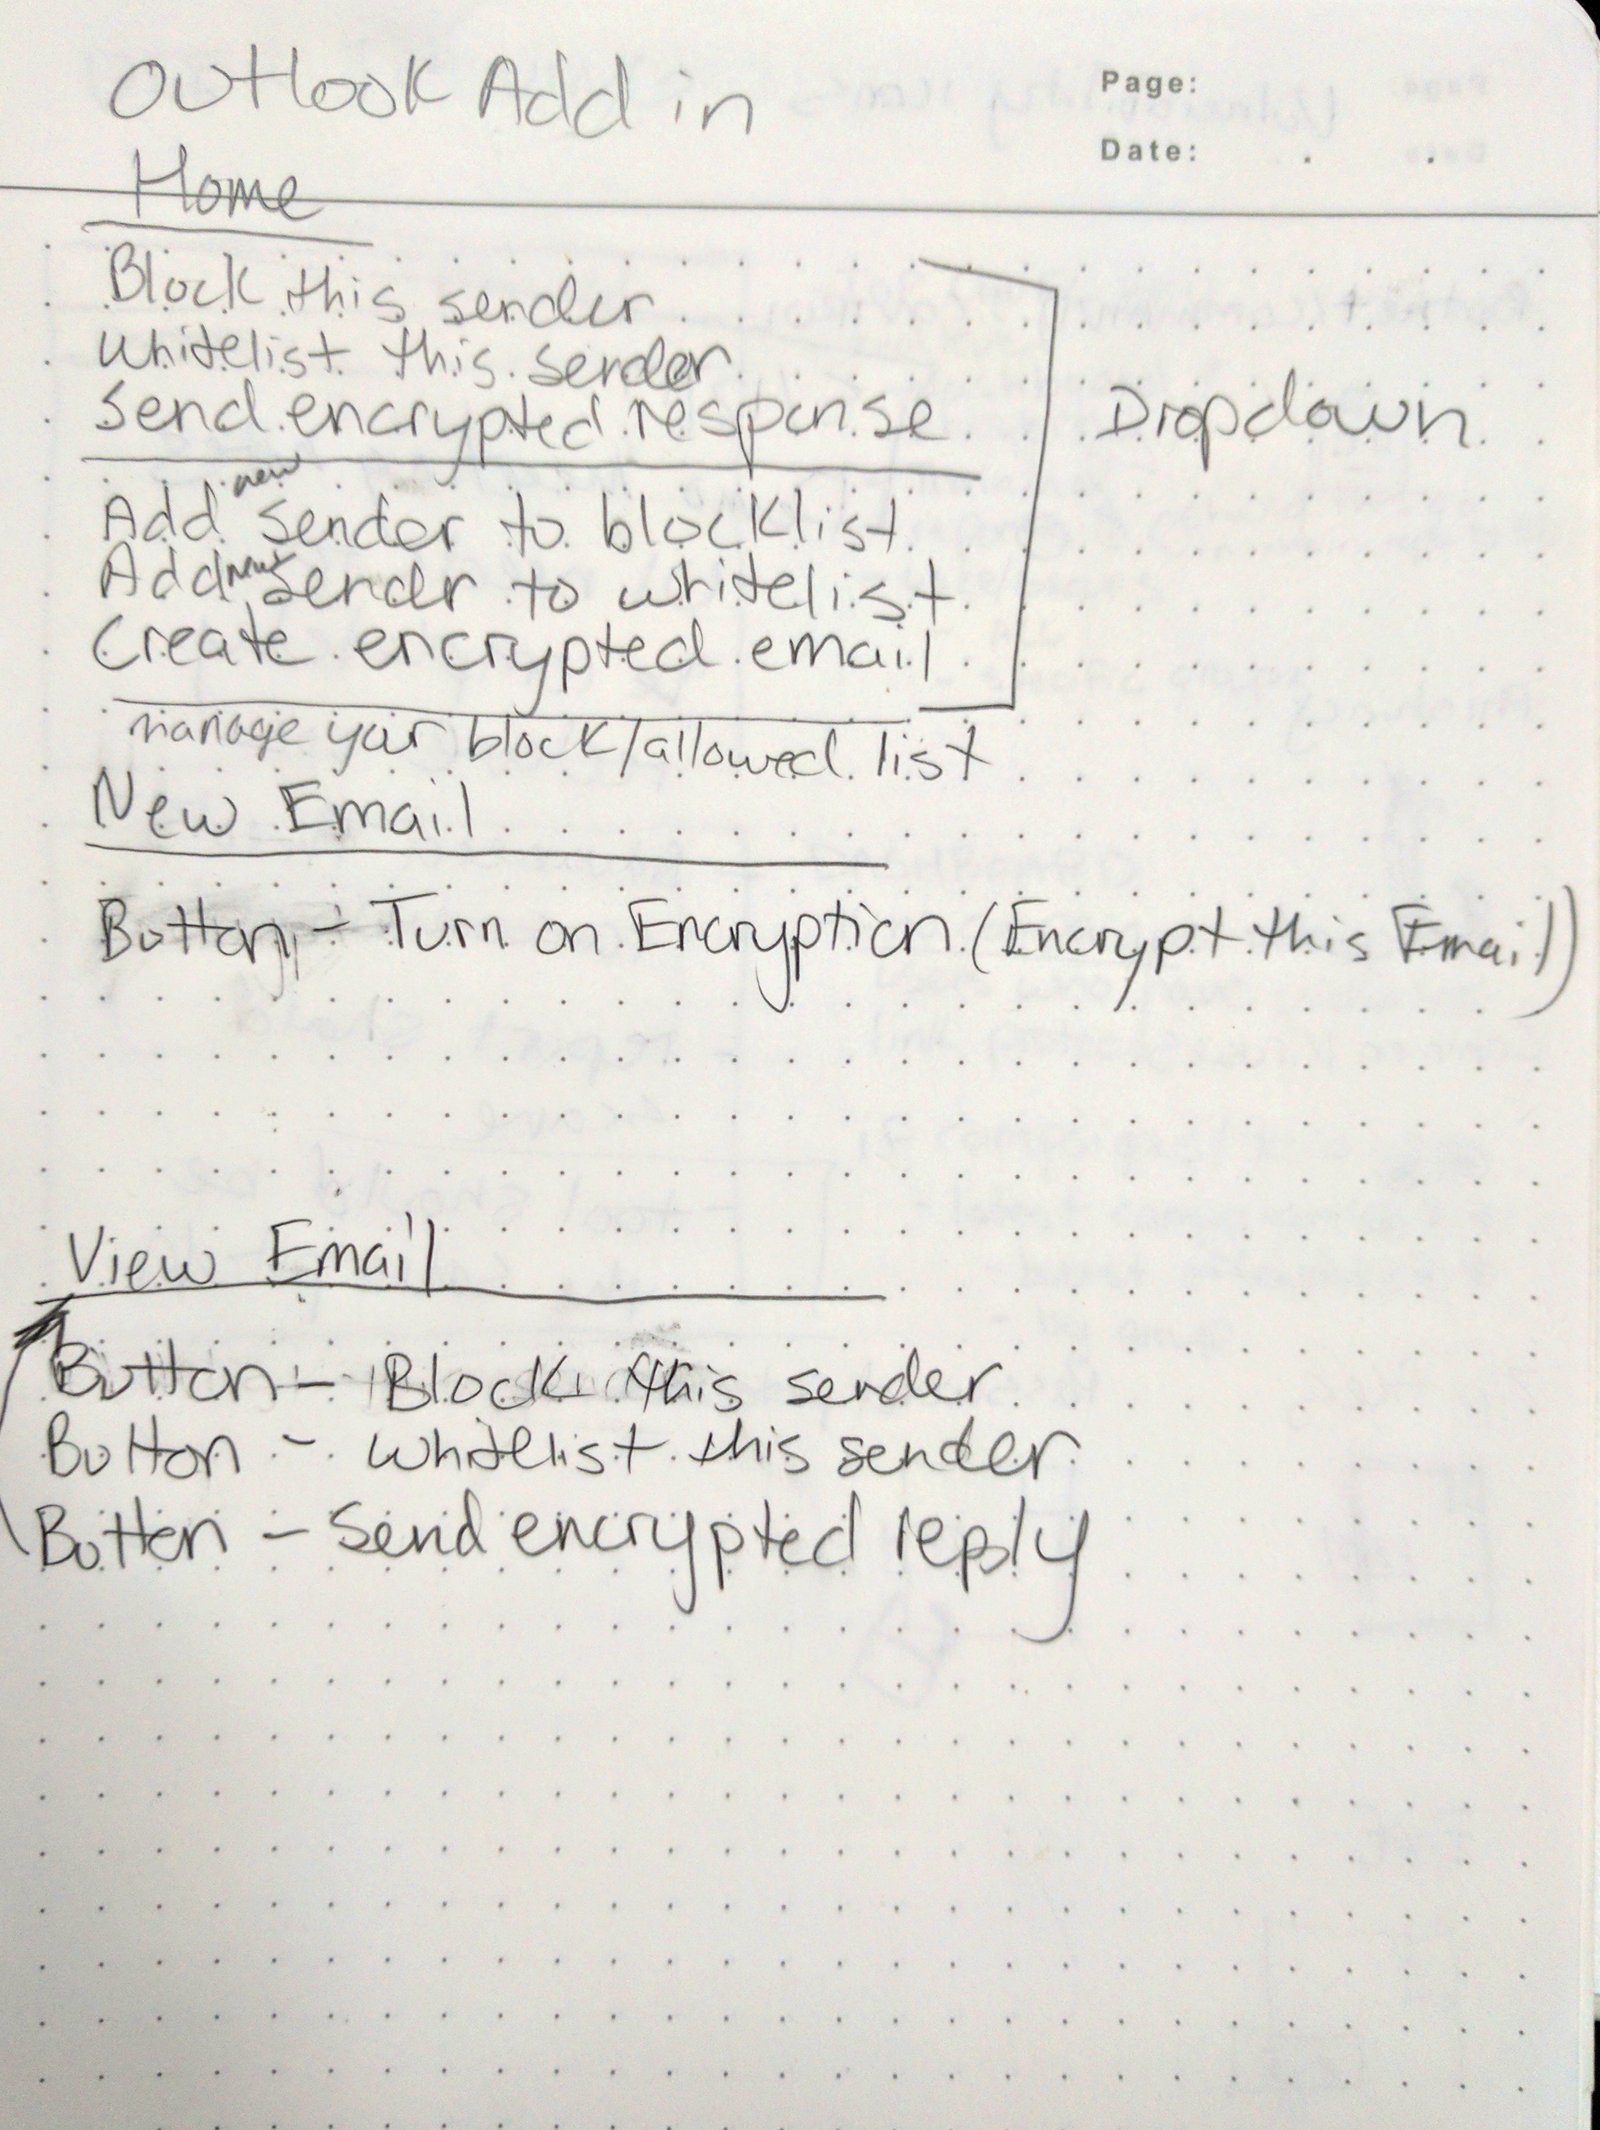 Outlook Add in
Page:
Date: . .
Home
Block this sender
Whitelist this sender
Send encrypted response
Dropdown
Add new sender to blocklist
Add new sender to whitelist
Create encrypted email
manage your block/allowed list
New Email
Button - Turn on Encryption (Encrypt this Email)
View Email
Button - Block this sender
Button - Whitelist this sender
Button - Send encrypted reply